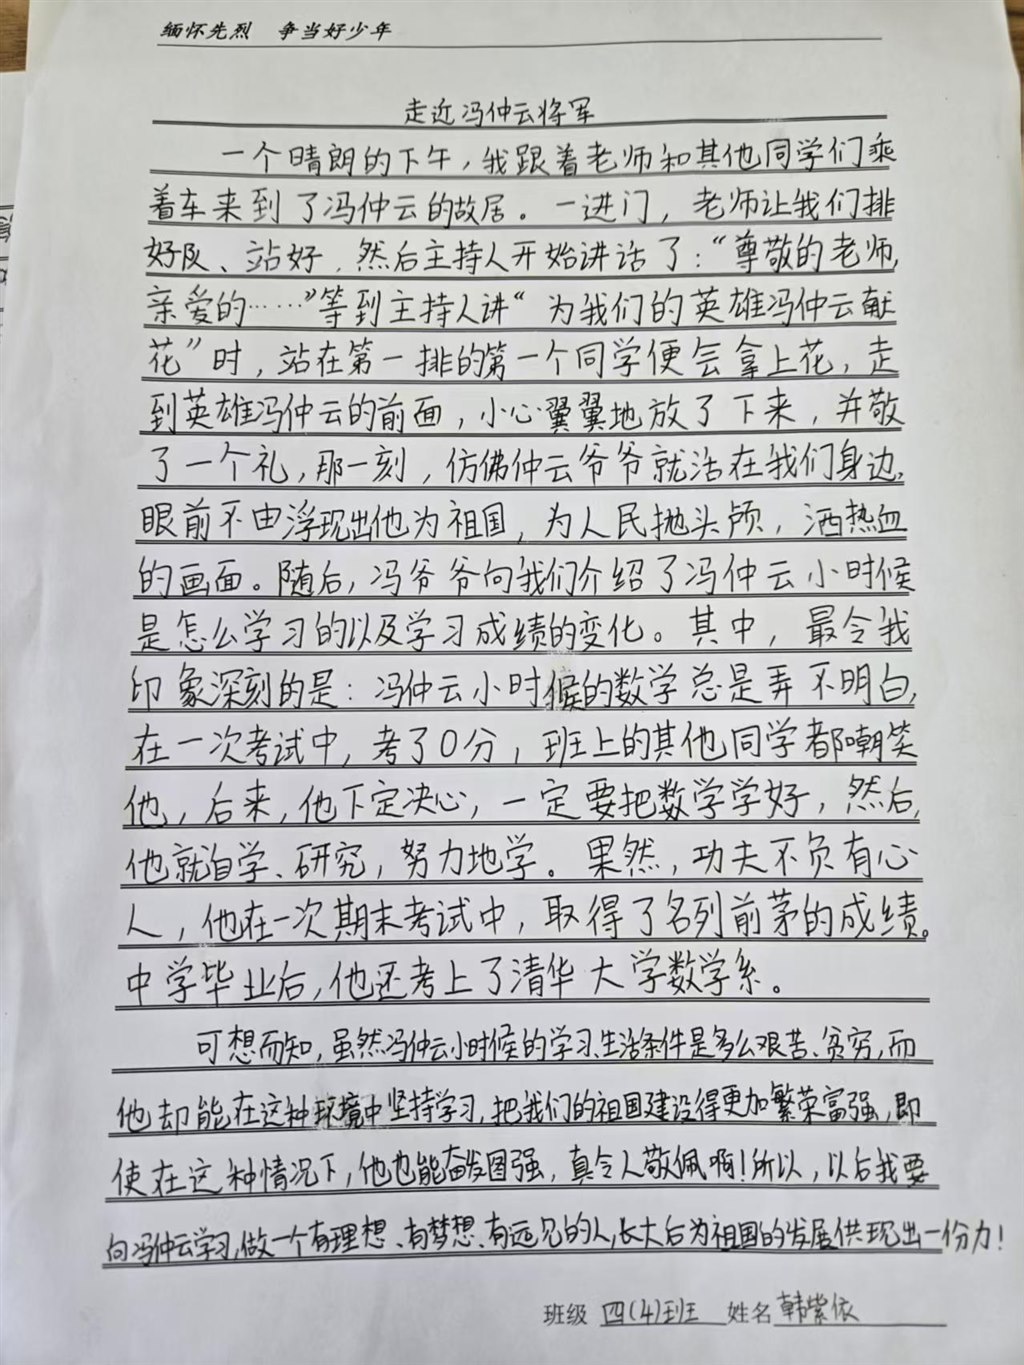 缅怀先烈　争当好少年
走近冯仲云将军
一个晴朗的下午，我跟着老师和其他同学们乘
着车来到了冯仲云的故居。一进门，老师让我们排
好队、站好，然后主持人开始讲话了：“尊敬的老师，
亲爱的……”等到主持人讲“为我们的英雄冯仲云献
花”时，站在第一排的第一个同学便会拿上花，走
到英雄冯仲云的前面，小心翼翼地放了下来，并敬
了一个礼，那一刻，仿佛仲云爷爷就活在我们身边，
眼前不由浮现出他为祖国，为人民抛头颅，洒热血
的画面。随后，冯爷爷向我们介绍了冯仲云小时候
是怎么学习的以及学习成绩的变化。其中，最令我
印象深刻的是：冯仲云小时候的数学总是弄不明白，
在一次考试中，考了0分，班上的其他同学都嘲笑
他，后来，他下定决心，一定要把数学学好，然后，
他就自学、研究，努力地学。果然，功夫不负有心
人，他在一次期末考试中，取得了名列前茅的成绩。
中学毕业后，他还考上了清华大学数学系。
可想而知，虽然冯仲云小时候的学习、生活条件是多么艰苦、贫穷，而
他却能在这种环境中坚持学习，把我们的祖国建设得更加繁荣富强，即
使在这种情况下，他也能奋发图强，真令人敬佩啊！所以，以后我要
向冯仲云学习，做一个有理想、有梦想、有远见的人，长大后为祖国的发展供现出一份力！
班级 四(4)班 姓名 韩紫依